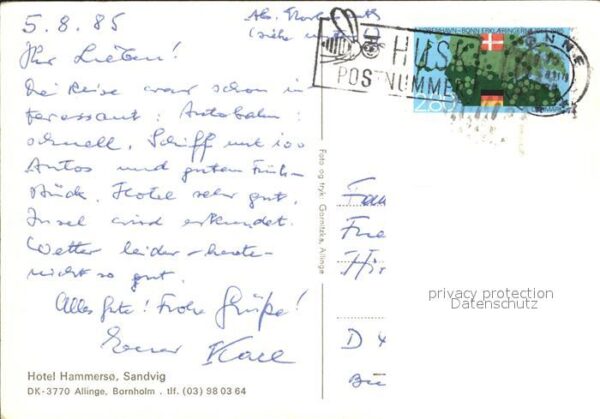 5.8.85
Ihr Lieben!
Die Reise war schon in-
teressant: Autobahn:
schnell, Schiff mit 100
Autos und gutem Früh-
stück. Hotel sehr gut,
Insel wird erkundet.
Wetter leider - heute -
nicht so gut.
Alles Gute! Frohe Grüße!
Euer Karl
Hotel Hammersø, Sandvig
DK-3770 Allinge, Bornholm . tlf. (03) 98 03 64
Foto og tryk: Gornitzka, Allinge
Abs.
(siehe
HUSK
POSTNUMMER
RØNNE
KØBENHAVN-BONN ERKLÆRINGERNE 1955-1985
2.80
Fam
D
privacy protection
Datenschutz